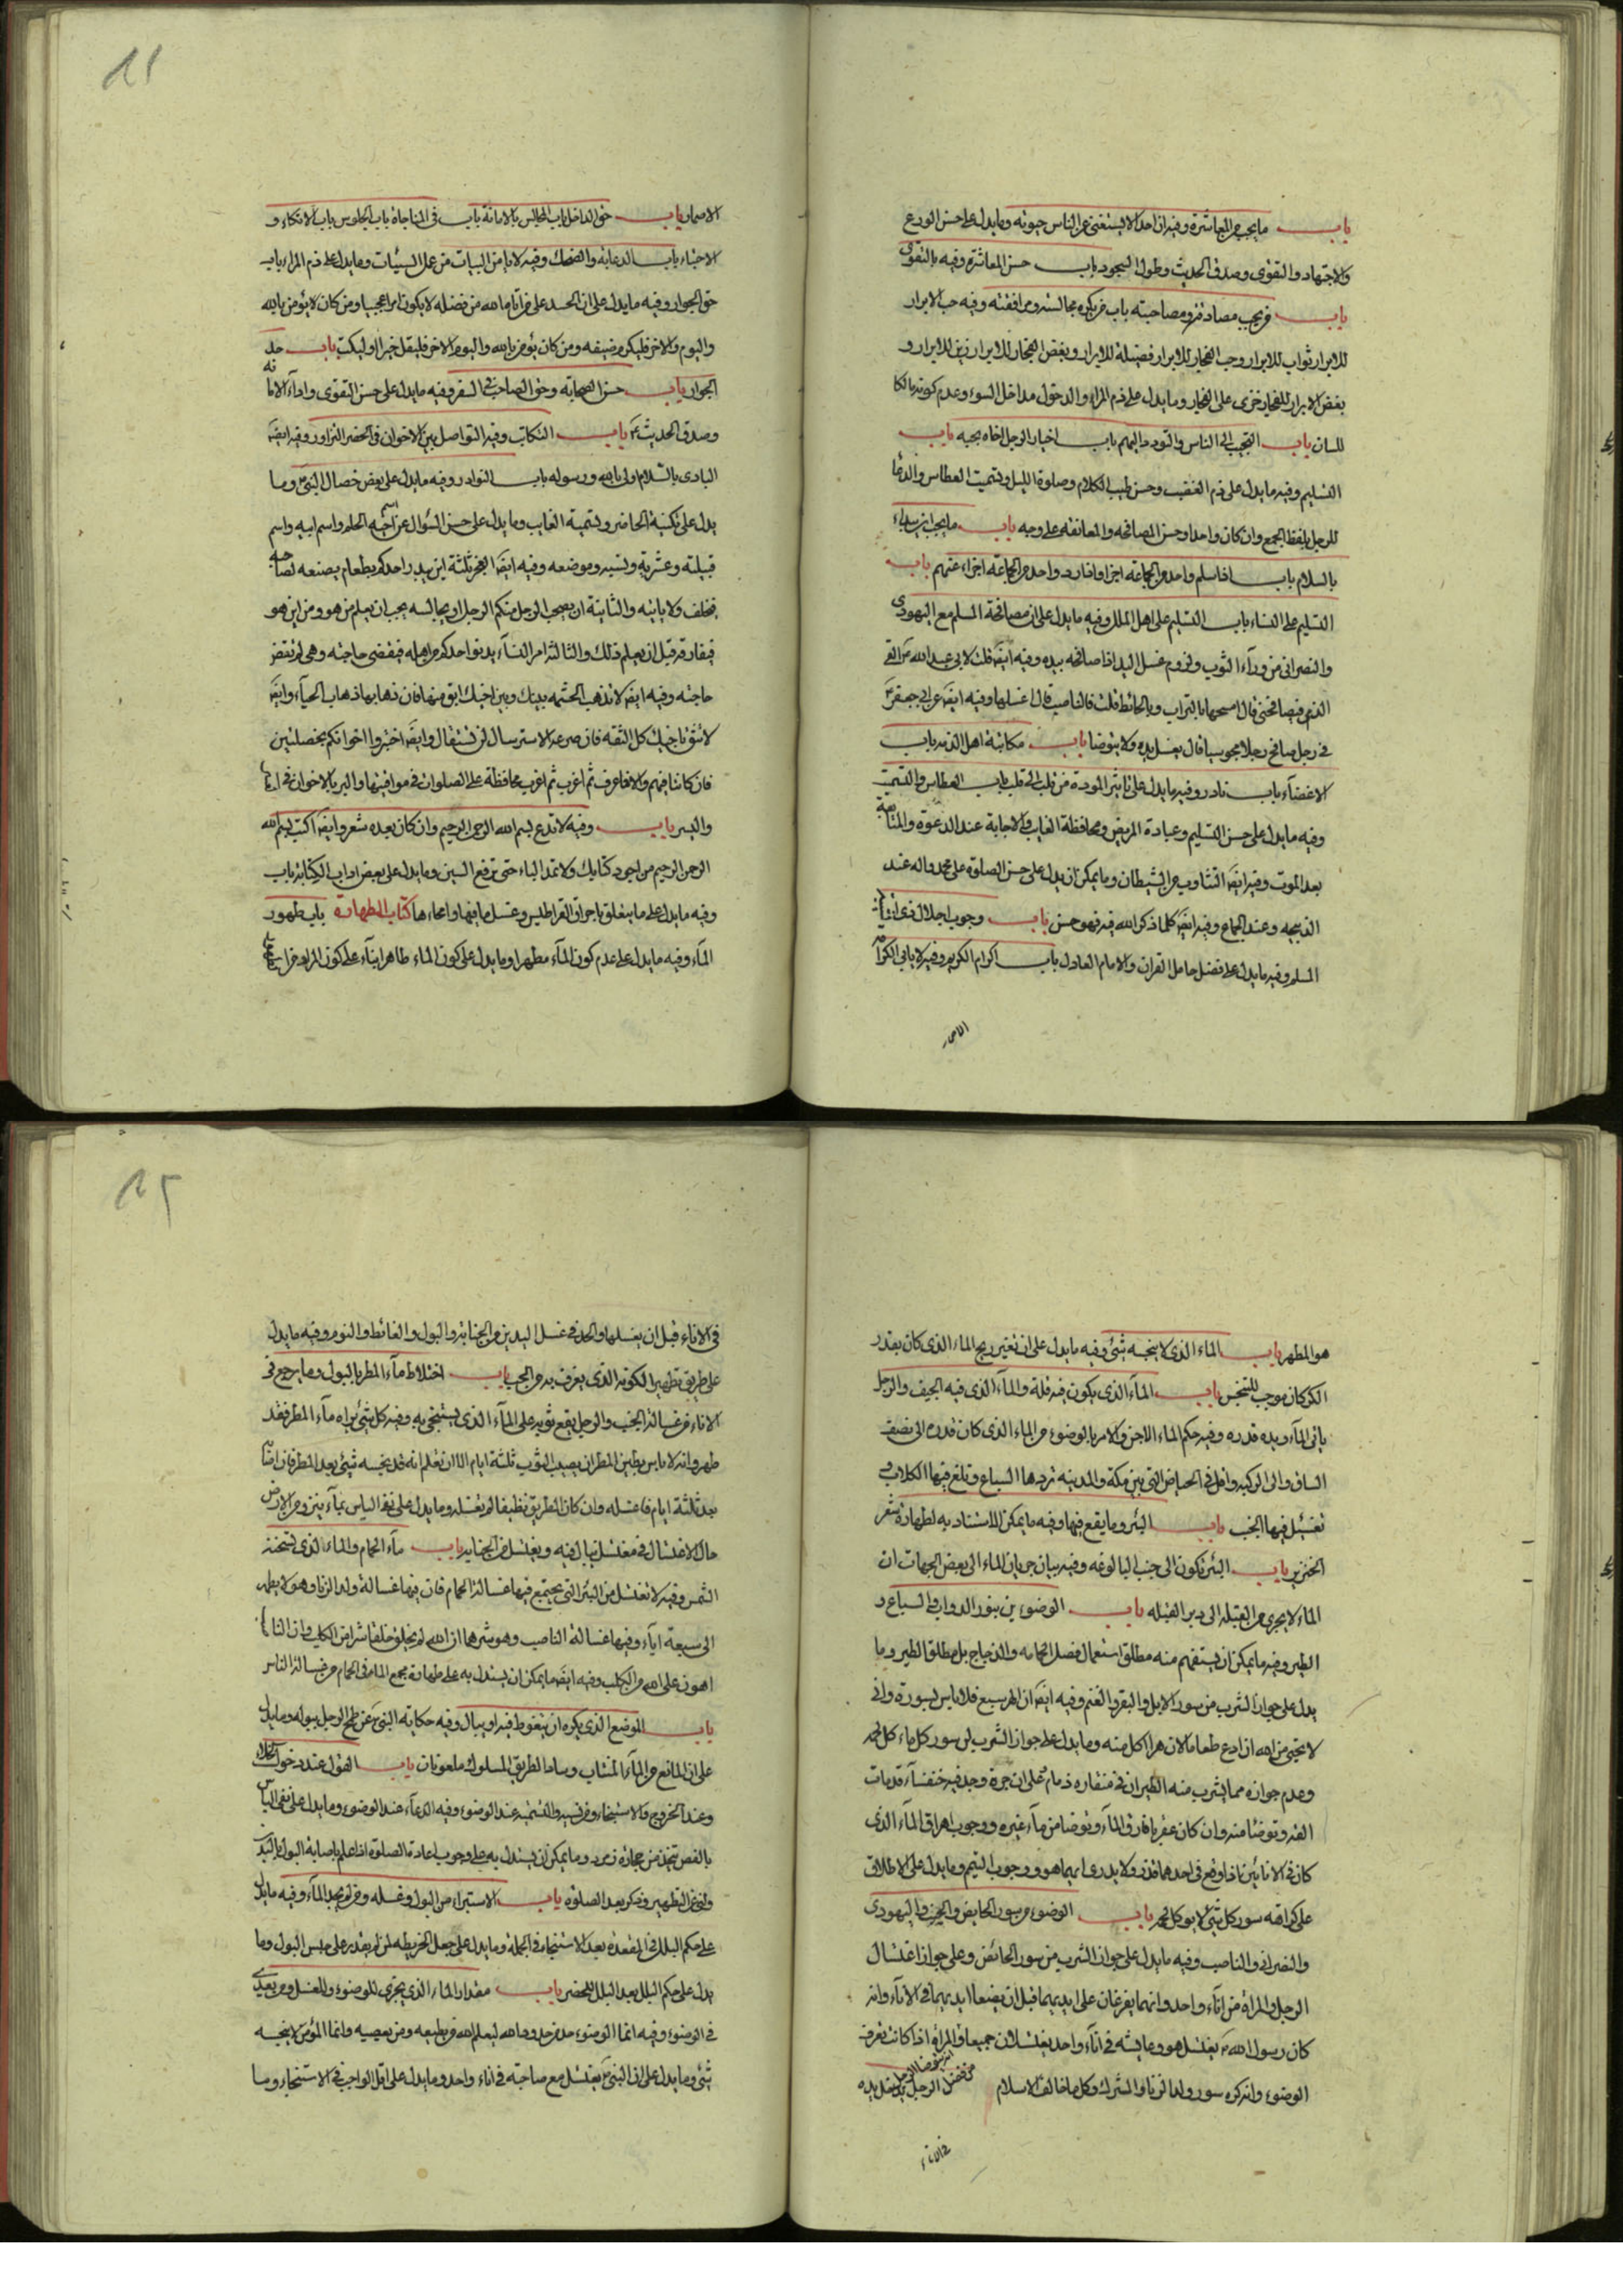 باب ما يجب من المعاشرة وفيه ان احدا لا يستغنى عن الناس حيوته وما يدل على حسن الورع
والاجتهاد والتقوى وصدق الحديث وطول السجود باب حسن المعاشرة وفيه بالتقوى
باب من يجب مصادقته ومصاحبته باب من يكره مجالسته ومرافقته وفيه حب الابرار
للابرار ثواب للابرار وحب الفجار للابرار فضيلة للابرار وبغض الفجار للابرار زين للابرار و
بغض الابرار للفجار خزى على الفجار وما يدل على ذم المراء والدخول مداخل السوء وعدم
للسان باب التحبب الى الناس والتودد اليهم باب اخبار الرجل اخاه بحبه باب
التسليم وفيه ما يدل على ذم الغضب وحسن طيب الكلام وصلوة الليل وتسميت العطاس والدعا
للرجل بلفظ الجمع وان كان واحدا وحسن المصافحه والمعانقه على وجه باب ما يجب ان يبداء
بالسلام باب اذا سلم واحد من الجماعة اجزا واذا رد واحد من الجماعة اجزاء عنهم باب
التسليم على النساء باب التسليم على اهل الملل وفيه ما يدل على ان مصافحة المسلم مع اليهودى
والنصرانى من وراء الثوب ولزوم غسل اليد اذا صافحه بيده وفيه ايضا قلت لابى عبد الله القى
الذمى فيصافحنى قال امسحها بالتراب وبالحائط قلت فالناصب قال اغسلها وفيه ايضا عن ابى جعفر
فى رجل صافح رجلا مجوسيا قال يغسل يده ولا يتوضا باب مكاتبة اهل الذمه باب
الاغضاء باب نادر وفيه ما يدل على تاثير المودة من قلب الى قلب باب العطاس والتسميت
وفيه ما يدل على حسن التسليم وعيادة المريض ومحافظة الغايب والاجابة عند الدعوة والمتابعة
بعد الموت وفيه ايضا التثاوب من الشيطان وما يمكن ان يدل على حسن الصلوة على محمد واله عند
الذبيحه وعند الجماع وفيه ايضا كلما ذكر الله فيه فهو حسن باب وجوب اجلال ذى
المسلم وفيه ما يدل على فضل حامل القران والامام العادل باب اكرام الكريم وفيه لا يابى الكرامة
الا
باب حق الداخل باب المجالس بالامانة باب فى المناجاة باب الجلوس باب الاتكاء و
الاحتباء باب الدعابة والضحك وفيه لا يامن البيات من عمل السيئات وما يدل على ذم المراء باب
حق الجوار وفيه ما يدل على ان الحسد على ما اتاه الله من فضله لا يكون امرا عجيبا ومن كان لا يؤمن بالله
واليوم والاخر فليكرم ضيفه ومن كان يؤمن بالله واليوم الاخر فليقل خيرا او ليسكت باب حد
الجوار باب حسن الصحابة وحق الصاحب فى السفر وفيه ما يدل على حسن التقوى واداء الامانه
وصدق الحديث باب التكاتب وفيه التواصل بين الاخوان فى الحضر التزاور وفيه ايضا
البادى بالسلام اولى بالله ورسوله باب النوادر وفيه ما يدل على بعض خصال النبى وما
يدل على تكنية الحاضر وتسمية الغايب وما يدل على حسن السؤال عن اسم اخيه المسلم واسم ابيه واسم
قبيلته وعشيرته وفيه ايضا العجز ثلثة ان يبدر احدكم بطعام يصنعه لصاحبه
فيخلف ولا ياتيه والثانية ان يصحب الرجل منكم الرجل او يجالسه يحب ان يعلم من هو ومن اين هو
فيفارقه قبل ان يعلم ذلك والثالثة امر النساء يدنو احدكم من اهله فيقضى حاجته وهى لم تقض
حاجته وفيه ايضا لا تذهب الحشمه بينك وبين اخيك ابق منها فان ذهابها ذهاب الحياء وايضا
لا تثق باخيك كل الثقة فان صرعة الاسترسال لن تستقال وايضا اختبروا اخوانكم بخصلتين
فان كانتا فيهم والا فاعزب ثم اعزب ثم اعزب محافظة على الصلوات فى مواقيتها والبر بالاخوان فى
واليسر باب وفيه لا تدع بسم الله الرحمن الرحيم وان كان بعده شعر وايضا اكتب بسم الله
الرحمن الرحيم من اجود كتابك ولا تمد الباء حتى ترفع السين وما يدل على بعض اداب الكتابة باب
وفيه ما يدل على ما يتعلق باحراق القراطيس وغسل ما فيها وامحاءها كتاب الطهارة باب طهور
الماء وفيه ما يدل على عدم كون الماء مطهرا وما يدل على كون الماء طاهرا بناء على كون المراد من
هو المطهر باب الماء الذى لا ينجسه شئ وفيه ما يدل على ان تغير ريح الماء الذى كان بقدر
الكر كان موجب للتنجس باب الماء الذى يكون فيه قلة والماء الذى فيه الجيف والرجل
ياتى الماء ويده قذره وفيه حكم الماء الاجن والامر بالوضوء من الماء الذى كان قدره الى نصف
الساق والى الركبه واقل فى الحياض التى بين مكة والمدينه تردها السباع وتلغ فيها الكلاب و
تغتسل فيها الجنب باب البئر وما يقع فيها وفيه ما يمكن الاستناد به لطهارة شعر
الخنزير باب البئر تكون الى جنب البالوعه وفيه بيان جريان الماء الى بعض الجهات ان
الماء لا يجرى من القبلة الى دبر القبله باب الوضوء من سور الدواب والسباع و
الطير وفيه ما يمكن ان يستفهم منه مطلق استعمال فضل الحمامه والدجاج بل مطلق الطير وما
يدل على جواز الشرب من سور الابل والبقر والغنم وفيه ايضا ان الهر سبع فلا باس بسورة وانى
لا ستحيى من الله ان ادع طعاما لان هرا اكل منه وما يدل على جواز الشرب من سور كل ماء كل لحمه
وعدم جوازه مما يشرب منه الطير ان فى منقاره دما وعلى ان جرة وجد فيه خنفساء قد مات
القه وتوضا منه وان كان عقربا فارق الماء وتوضا من ماء غيره ووجوب اهراق الماء الذى
كان فى الانائين اذا وقع فى احدهما قذر ولا يدرى ايهما هو ووجوب التيمم وما يدل على الاطلاق
على كراهة سور كل شئ لا يوكل لحمه باب الوضوء من سور الحايض والجنب واليهودى
والنصرانى والناصب وفيه ما يدل على جواز الشرب من سور الحائض وعلى جواز اغتسال
الرجل والمراة من اناء واحد وانهما يفرغان على ايديهما قبل ان يضعا ايديهما فى الاناء وانه
كان رسول الله يغتسل هو وعايشه فى اناء واحد يغتسلان جميعا والمراة اذا كانت تعرف
الوضوء وانه كره سور ولد الزنا والمشرك وكل ما خالف الاسلام الرجل يده
فى الاناء قبل ان يغسلها والحد فى غسل اليدين من الجنابة والبول والغائط والنوم وفيه ما يدل
على طريق تطهير الكوز الذى يغرف به من الحب باب اختلاط ماء المطر بالبول وما يرجع فى
الاناء من غسالة الجنب والرجل يقع ثوبه على الماء الذى يستنجى به وفيه كل شئ يراه ماء المطر فقد
طهر وانه لا باس بطين المطر ان يصيب الثوب ثلثة ايام الا ان تعلم انه قد نجسه شئ بعد المطر فان اصابه
بعد ثلثة ايام فاغسله وان كان الطريق نظيفا لم تغسله وما يدل على نفى الباس بماء ينزو من الارض
حال الاغتسال فى مغتسل يبال فيه ويغتسل من الجنابه باب ماء الحمام والماء الذى تسخنه
الشمس وفيه لا تغتسل من البئر التى يجتمع فيها غسالة الحمام فان فيها غسالة ولد الزنا وهو لا يطهر
الى سبعة اباء وفيها غسالة الناصب وهو شرهما ان الله لم يخلق خلقا شرا من الكلب وان الناصب
اهون على الله من الكلب وفيه ايضا ما يمكن ان يستدل به على طهارة مجمع الماء فى الحمام من غسالة الناس
باب الموضع الذى يكره ان يتغوط فيه او يبال وفيه حكاية النبى عن طمح الرجل ببوله وما يدل
على ان المانع من الماء المنتاب وساد الطريق المسلوك ملعونان باب القول عند دخول الخلاء
وعند الخروج والاستنجاء ومن نسيه والتسميه عند الوضوء وفيه الدعاء عند الوضوء وما يدل على نفى الباس
بالفص يتخذ من حجارة زمرد وما يمكن ان يستدل به على وجوب اعادة الصلوة اذا علم باصابة البول بالبدن
ونسى التطهير وذكر بعد الصلوة باب الاستبراء من البول وغسله ومن لم يجد الماء وفيه ما يدل
على حكم البلل فى المقعدة بعد الاستنجاء فى الجملة وما يدل على جعل الخريطه لمن لم يقدر على حبس البول وما
يدل على حكم البلل بعد البلل المحضر باب مقدار الماء الذى يجزى للوضوء والغسل ومن يعتدى
فى الوضوء وفيه انما الوضوء حد من حدود الله ليعلم الله من يطيعه ومن يعصيه وانما المؤمن لا ينجسه
شئ وما يدل على ان النبى يغتسل مع صاحبته فى اناء واحد وما يدل على اقل الواجب فى الاستنجاء وما